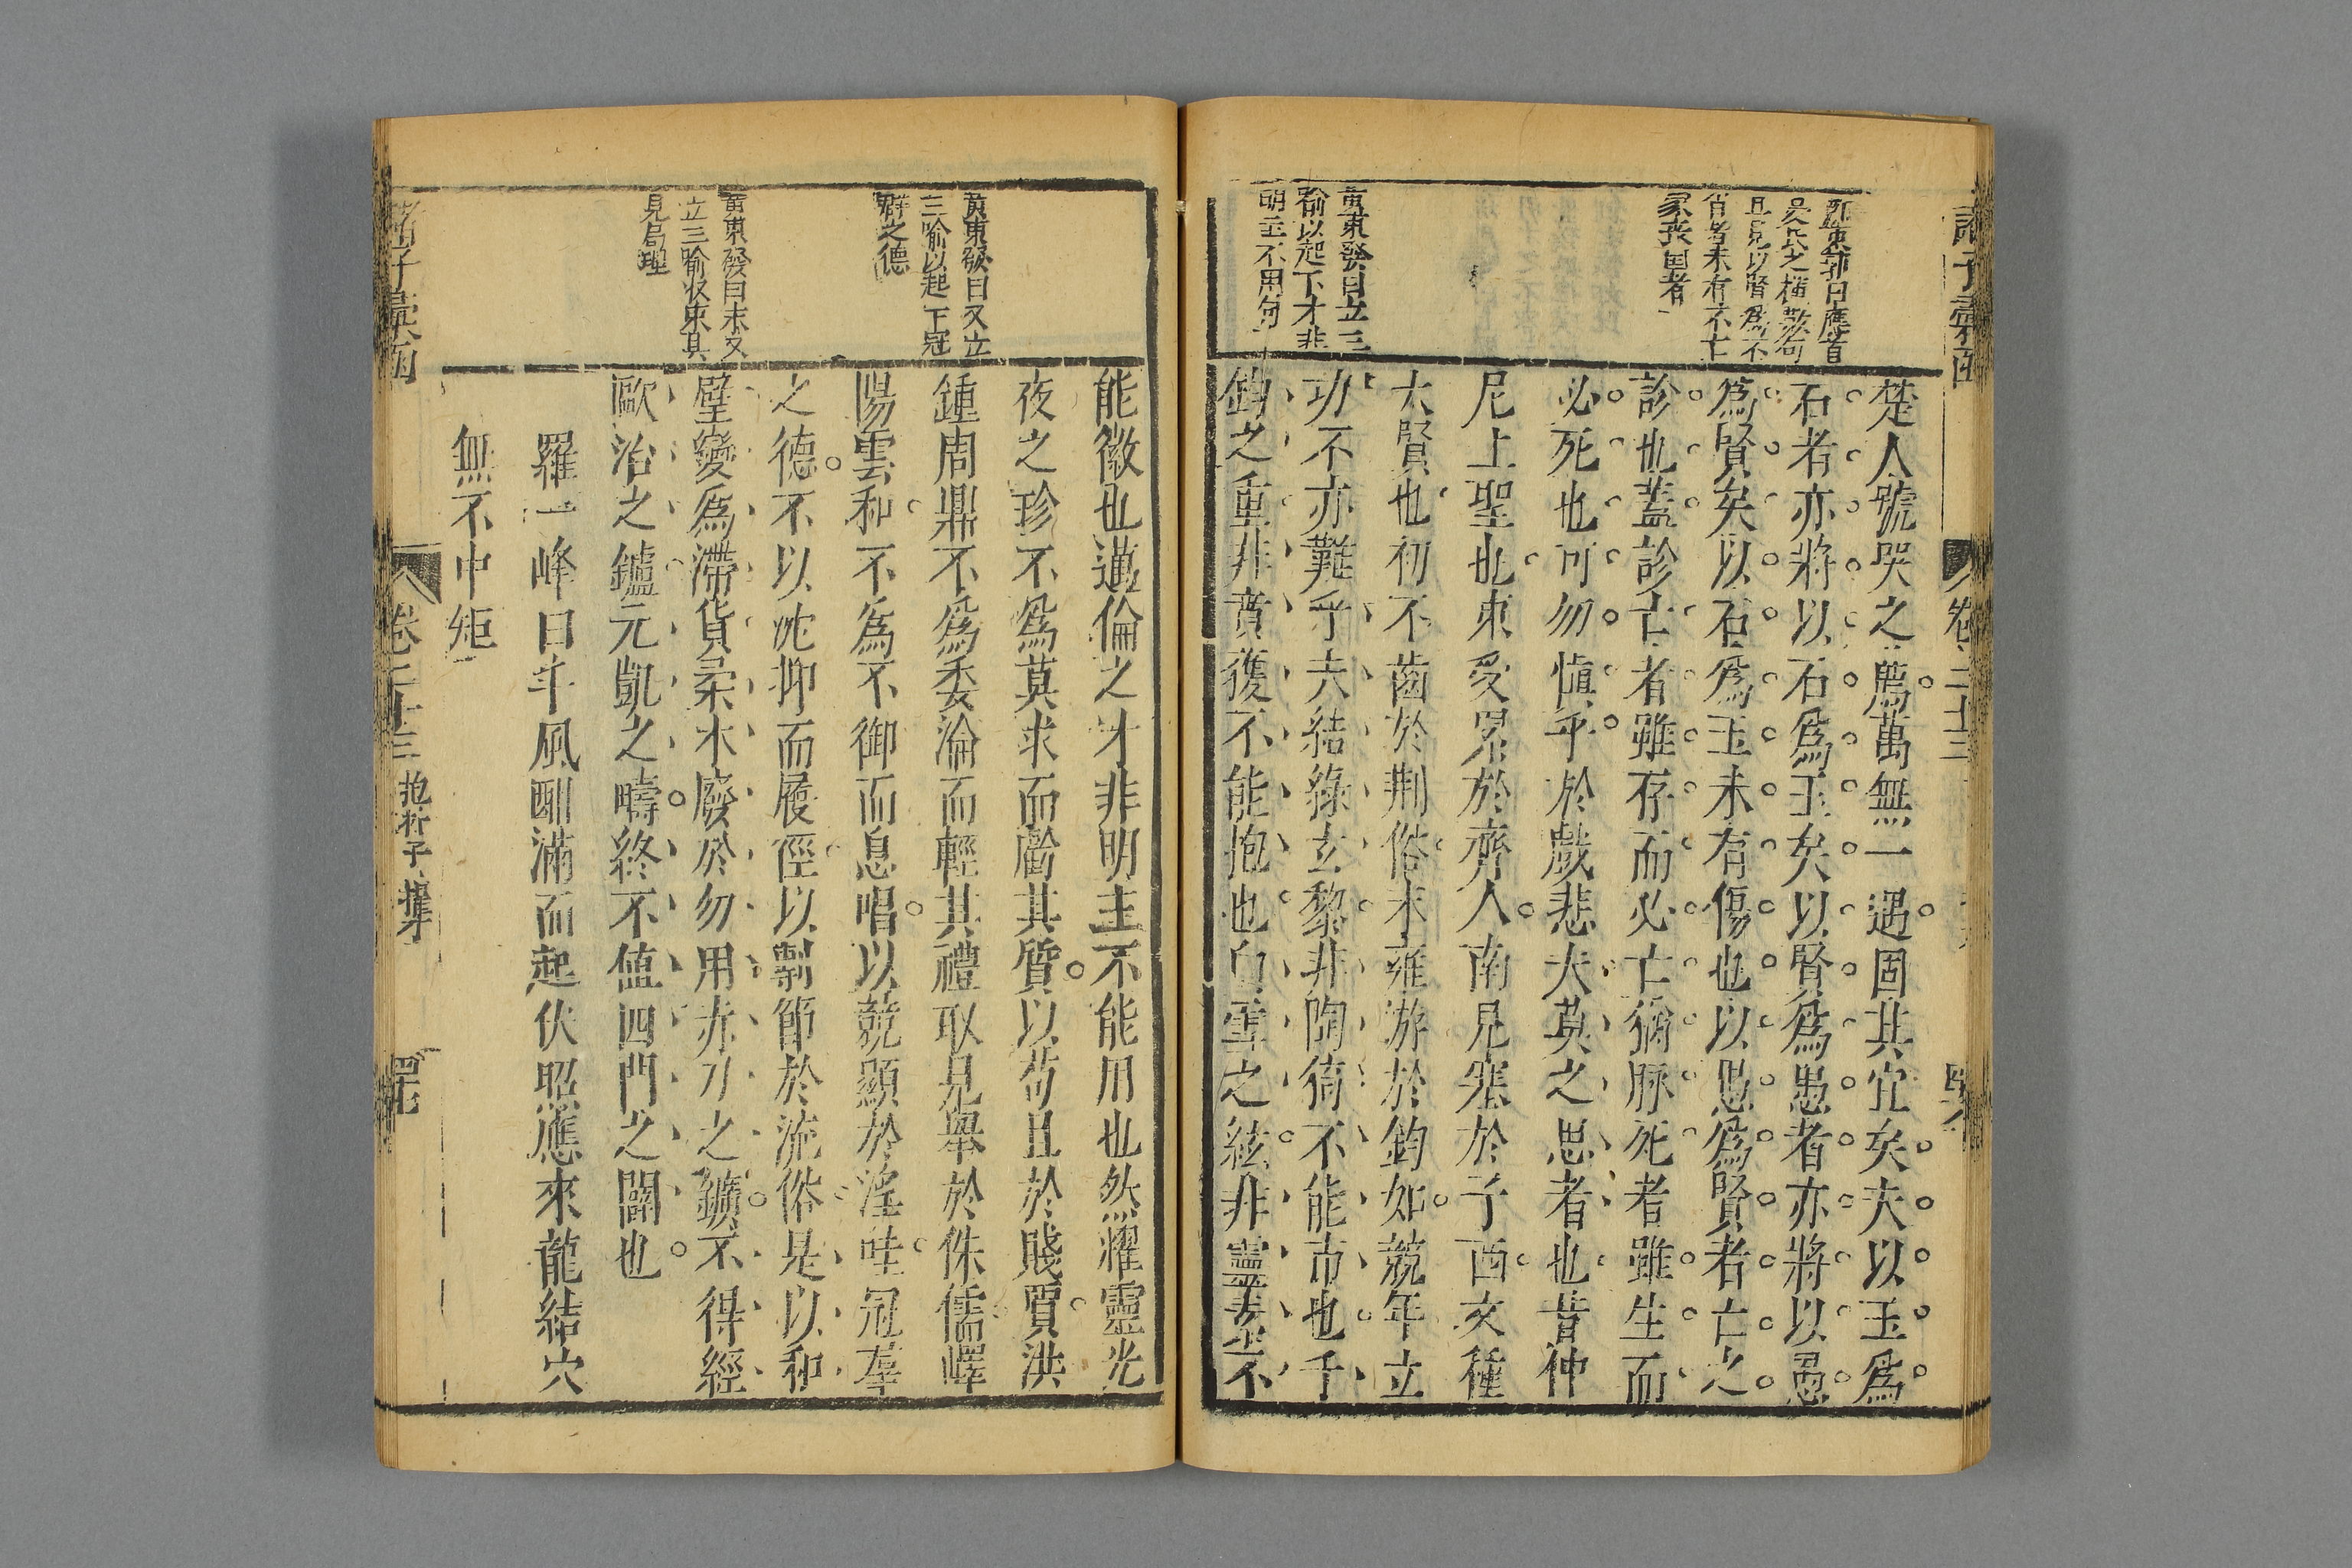 諸子彙函
卷二十三
楚人號哭之薦萬無一遇固其宜矣夫以玉爲
石者亦將以石爲玉矣以賢爲愚者亦將以愚
爲賢矣以石爲玉未有傷也以愚爲賢者亡之
診也蓋診亡者雖存而必亡猶脉死者雖生而
必死也可勿慎乎於戲悲夫莫之思者也昔仲
尼上聖也東受累於齊人南見塞於子西文種
大賢也初不齒於荆俗末雍游於鈞如競年立
功不亦難乎夫結綠玄黎非陶猗不能市也千
鈞之重非賁獲不能抱也白雪之絃非靈素不
家喪国者
黃東發曰立三
喻以起下才非
明主不用句
能徽也邁倫之才非明主不能用也然耀靈光
夜之珍不爲莫求而虧其質以苟且於賤賈洪
鍾周鼎不爲委淪而輕其禮取見舉於侏儒嶧
陽雲和不爲不御而息唱以競顯於淫哇冠羣
之德不以沈抑而履徑以剸節於流俗是以和
璧變爲滯貨柔木廢於勿用赤刀之鑛不得經
歐冶之鑪元凱之疇終不値四門之闢也
羅一峰曰斗風酣滿而起伏照應來龍結穴
無不中矩
黃東發曰又立
三喻以起下冠
群之德
黃東發曰末又
立三喻收束其
見局理
諸子彙函
卷二十三
抱朴子